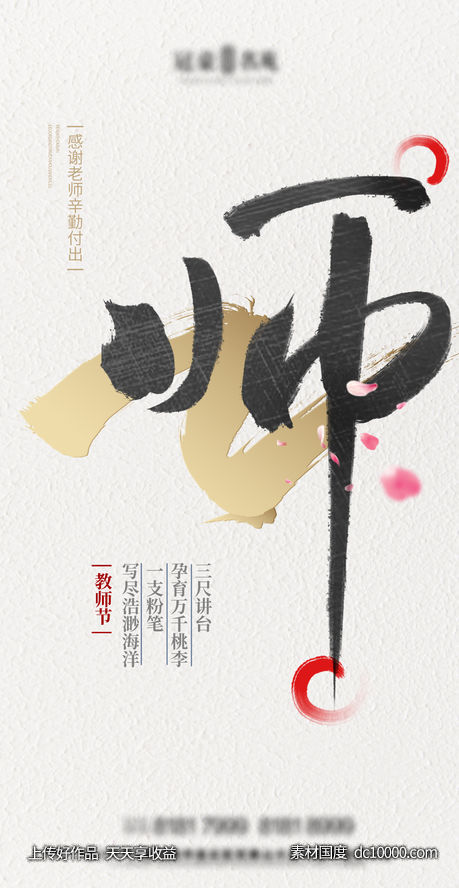 感谢老师辛勤付出
师
三尺讲台
孕育万千桃李
一支粉笔
写尽浩渺海洋
教师节
上传好作品 天天享收益
素材国度 dc10000.com